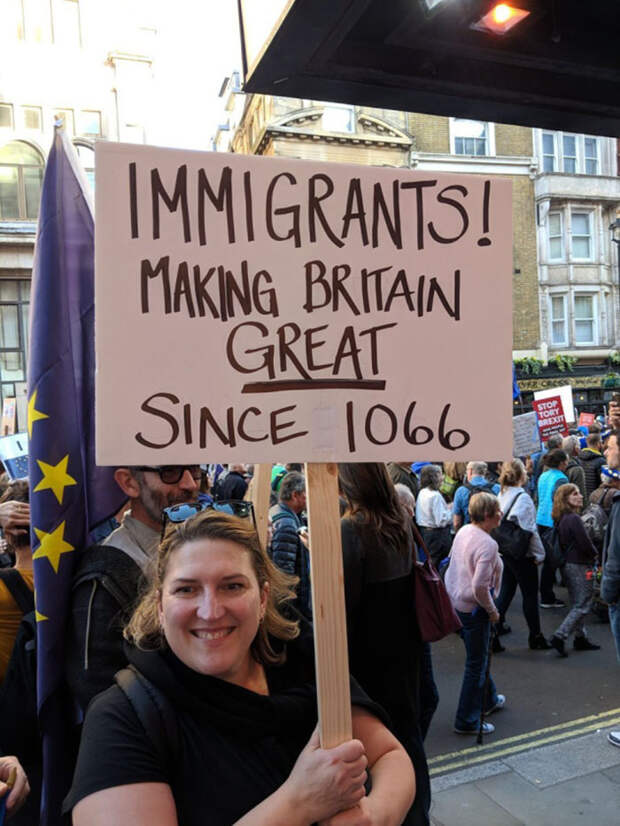 IMMIGRANTS!
MAKING BRITAIN
GREAT
SINCE 1066
STOP
TORY
BREXIT